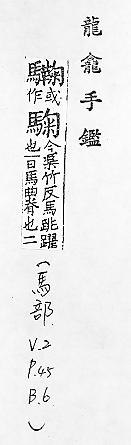 龍龕手鑑
驧或作䮗今渠竹反馬跳躍也一曰馬曲脊也二
(馬部 V.2 P.45 B.6)